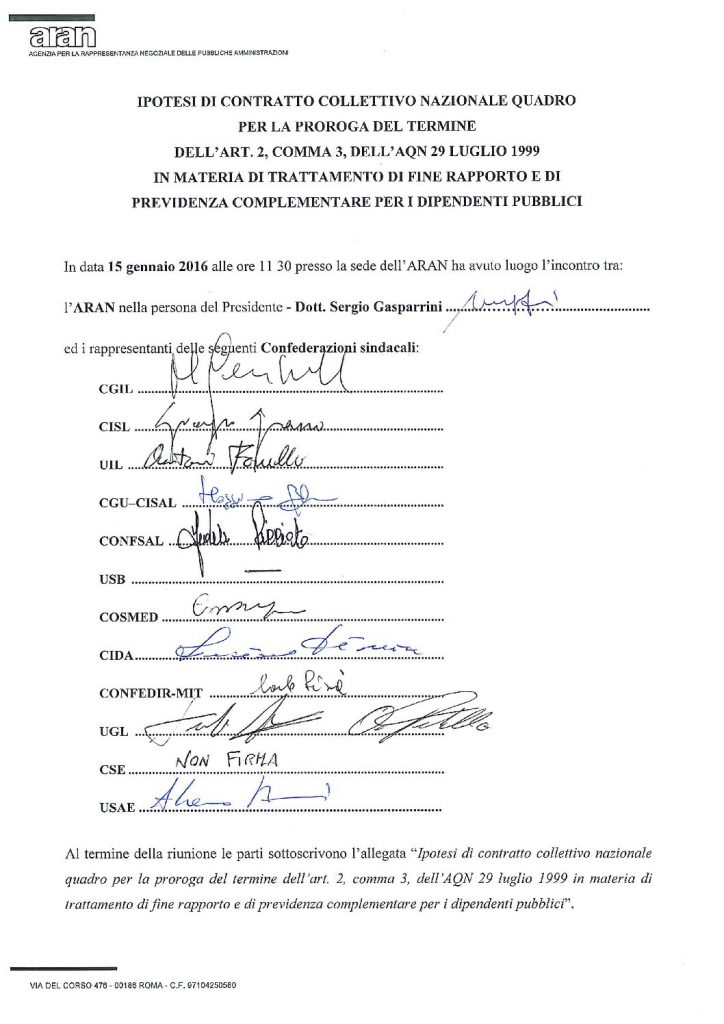 aran
AGENZIA PER LA RAPPRESENTANZA NEGOZIALE DELLE PUBBLICHE AMMINISTRAZIONI
IPOTESI DI CONTRATTO COLLETTIVO NAZIONALE QUADRO
PER LA PROROGA DEL TERMINE
DELL'ART. 2, COMMA 3, DELL'AQN 29 LUGLIO 1999
IN MATERIA DI TRATTAMENTO DI FINE RAPPORTO E DI
PREVIDENZA COMPLEMENTARE PER I DIPENDENTI PUBBLICI
In data 15 gennaio 2016 alle ore 11 30 presso la sede dell'ARAN ha avuto luogo l'incontro tra:
l'ARAN nella persona del Presidente - Dott. Sergio Gasparrini
ed i rappresentanti delle seguenti Confederazioni sindacali:
CGIL
CISL
UIL
CGU–CISAL
CONFSAL
USB
COSMED
CIDA
CONFEDIR-MIT
UGL
CSE NON FIRMA
USAE
Al termine della riunione le parti sottoscrivono l'allegata “Ipotesi di contratto collettivo nazionale
quadro per la proroga del termine dell'art. 2, comma 3, dell'AQN 29 luglio 1999 in materia di
trattamento di fine rapporto e di previdenza complementare per i dipendenti pubblici”.
VIA DEL CORSO 476 - 00186 ROMA - C.F. 97104250580